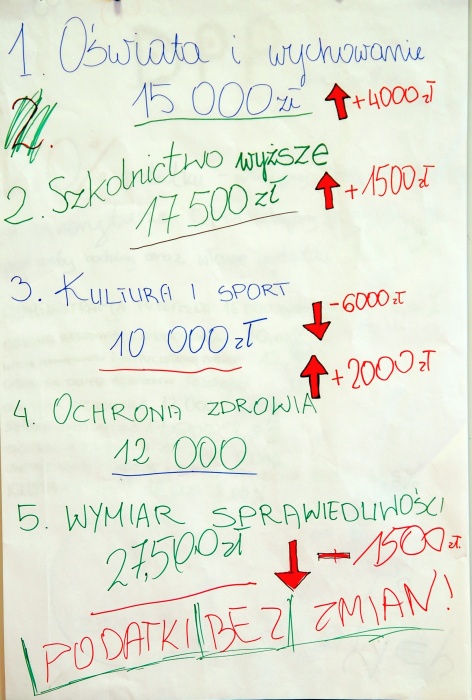 1. Oświata i wychowanie
15 000 zł +4000 zł
2.
2. Szkolnictwo wyższe
17 500 zł +1500 zł
3. KULTURA I SPORT
-6000 zł
10 000 zł
+2000 zł
4. OCHRONA ZDROWIA
12 000
5. WYMIAR SPRAWIEDLIWOŚCI
27,500 zł - 1500 zł.
PODATKI BEZ ZMIAN!